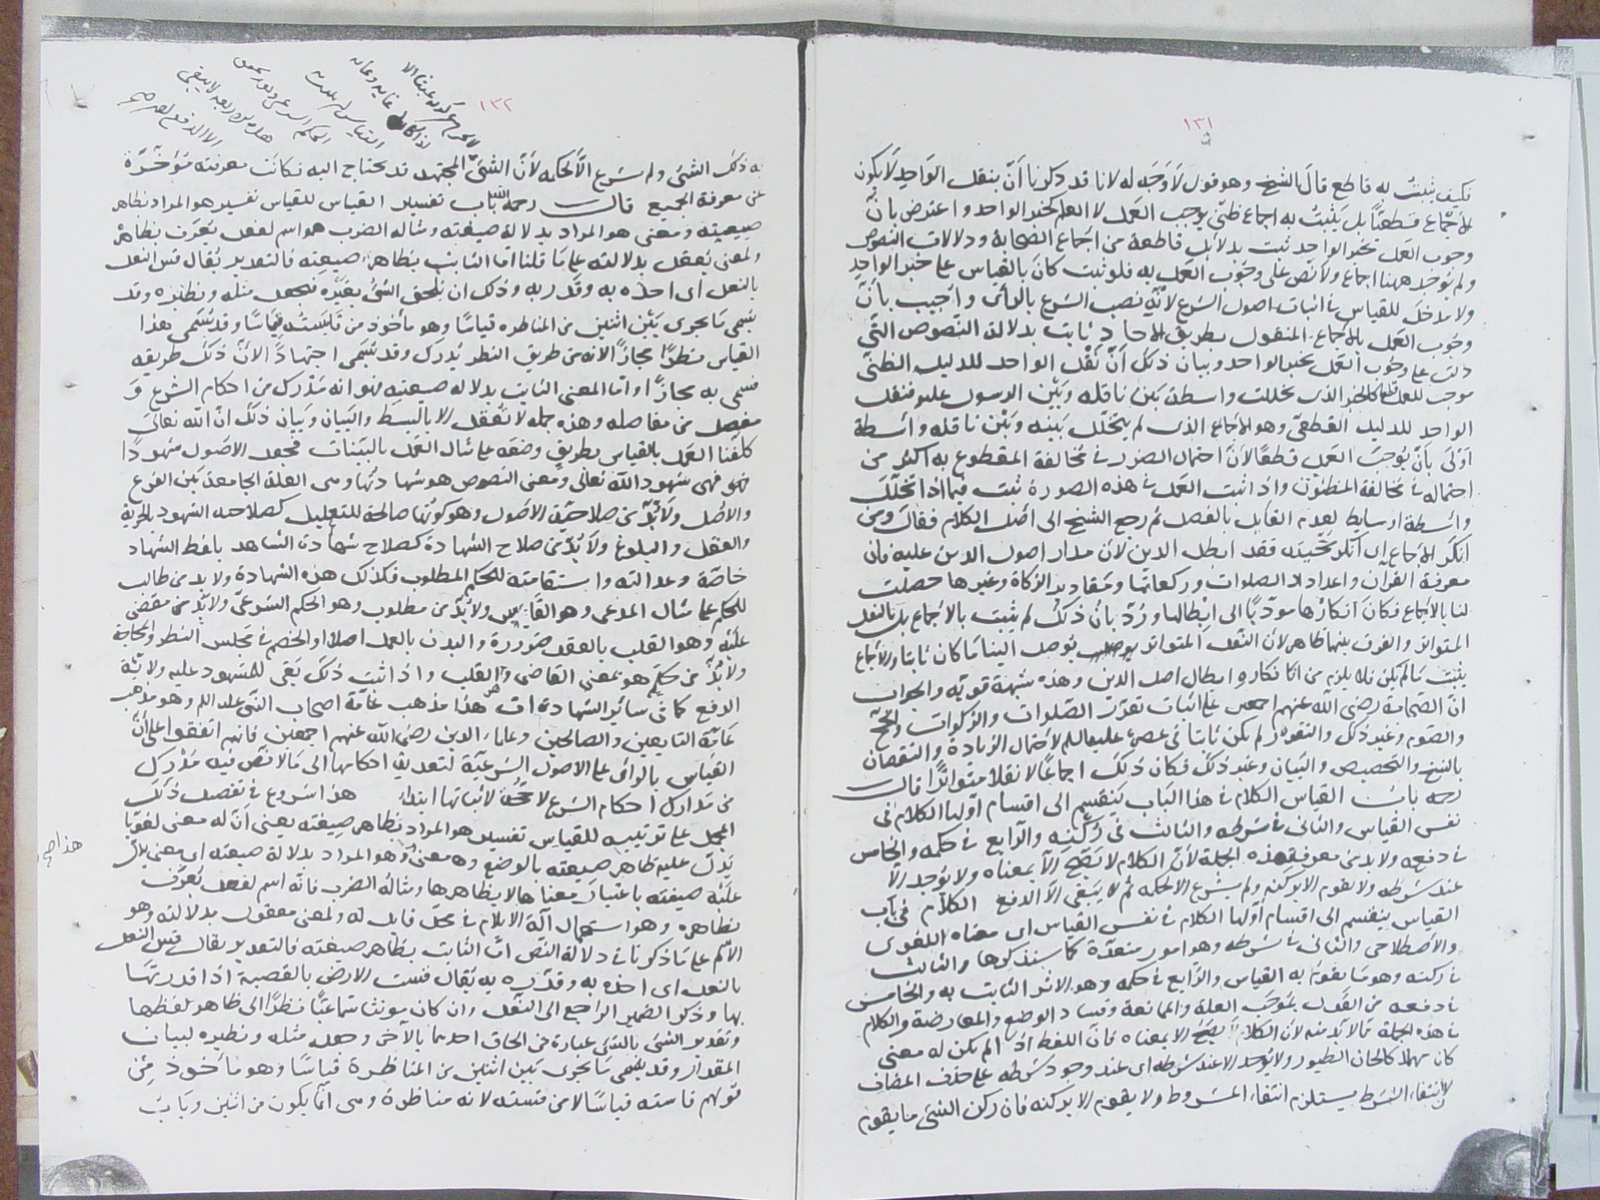 ١٣١
فكيف يثبت له قاطع قال الشيخ وهو قول لا وجه له لانا قد ذكرنا أن بنقل الواحد لا يكون
الاجماع قطعيًا بل يثبت به اجماع ظني يوجب العمل لا العلم كخبر الواحد واعترض بان
وجوب العمل بخبر الواحد ثبت بدلائل قاطعة من اجماع الصحابة ودلالات النصوص
ولم يوجد ههنا اجماع ولا نص على وجوب العمل به فلو ثبت كان بالقياس على خبر الواحد
ولا مدخل للقياس في اثبات اصول الشرع لانه نصب الشرع بالرأى واجيب بان
وجوب العمل بالاجماع المنقول بطريق الآحاد ثابت بدلالة النصوص التي
دلت على وجوب العمل بخبر الواحد وبيان ذلك أن نقل الواحد للدليل الظني
موجب للعمل قطعا كالخبر الذى تخللت واسطة بين ناقله وبين الرسول عليه فنقل
الواحد للدليل القطعي وهو الاجماع الذى لم يتخلل بينه وبين ناقله واسطة
اولى بان يوجب العمل قطعًا لان احتمال الضرر في مخالفة المقطوع به اكثر من
احتماله في مخالفة المظنون واذا ثبت العمل في هذه الصورة ثبت فيما اذا تخلل
واسطة او سايط لعدم القايل بالفصل ثم رجع الشيخ الى اصل الكلام فقال ومن
انكر الاجماع اى انكر حجيته فقد ابطل الدين لان مدار اصول الدين عليه فان
معرفة القرآن واعداد الصلوات وركعاتها ومقادير الزكاة وغيرها حصلت
لنا بالاجماع فكان انكارها مؤديًا الى ابطالها ورُدّ بأن ذلك لم يثبت بالاجماع بل بالنقل
المتواتر والفرق بينهما ظاهر لان النقل المتواتر يوصل الينا ما كان ثابتا والاجماع
يثبت ما لم يكن فلا يلزم من انكاره ابطال اصل الدين وهذه شبهة قوية والجواب
ان الصحابة رضى الله عنهم اجمعين على اثبات تقرر الصلوات والزكوات والحج
والصوم وغير ذلك والتقرر لم يكن ثابتا في عصره عليه السلم لاحتمال الزيادة والنقصان
بالنسخ والتخصيص والبيان وغير ذلك فكان ذلك اجماعًا لا نقلا متواترًا قال
رحمه باب القياس الكلام في هذا الباب ينقسم الى اقسام اولها الكلام في
نفس القياس والثانى في شرطه والثالث في ركنه والرابع في حكمه والخامس
في دفعه ولا بد من معرفة هذه الجملة لان الكلام لا يصح الا بمعناه ولا يوجد الا
عند شرطه ولا يقوم الا بركنه ولم يشرع الا لحكمه ثم لا يبقى الا الدفع الكلام في باب
القياس ينقسم الى اقسام اولها الكلام في نفس القياس اى معناه اللغوى
والاصطلاحى والثانى في شرطه وهو امور متعددة كما سنذكرها والثالث
في ركنه وهو ما يقوم به القياس والرابع في حكمه وهو الاثر الثابت به والخامس
في دفعه من القول بموجب العلة والممانعة وفساد الوضع والمعارضة والكلام
في هذه الجملة مما لا بد منه لان الكلام لا يصح الا بمعناه فان اللفظ اذا لم يكن له معنى
كان مهملا كالحان الطيور ولا يوجد الا عند شرطه اى عند وجود شرطه على حذف المضاف
لان انتفاء الشرط يستلزم انتفاء المشروط ولا يقوم الا بركنه فان ركن الشئ ما يقوم
١٣٢
به ذلك الشئ ولم يشرع الا لحكمه لان الشئ المجتهد قد يحتاج اليه فكانت معرفته مؤخرة
عن معرفة الجميع قال رحمه الله باب تفسير القياس للقياس تفسير هو المراد بظاهر
صيغته ومعنى هو المراد بدلالة صيغته ومثاله الضرب هو اسم لفعل يعرف بظاهره
ولمعنى يعقل بدلالته على ما قلنا اما الثابت بظاهر صيغته فالتقدير يقال قس النعل
بالنعل اى احذه به وقدره به وذلك ان يلحق الشئ بغيره فيجعل مثله ونظيره وقد
يسمى ما يجرى بين اثنين من المناظره قياسًا وهو مأخوذ من قايسته قياسًا وقد يسمى هذا
القياس نظرًا مجازًا لانه من طريق النظر يدرك وقد يسمى اجتهادًا لان ذلك طريقه
فسمى به مجازًا واما المعنى الثابت بدلالة صيغته فهو انه مدرك من احكام الشرع و
مفصل من مفاصله وهذه جملة لا تعقل الا بالبسط والبيان وبيان ذلك ان الله تعالى
كلفنا العمل بالقياس بطريق وضعه على مثال العمل بالبينات فجعل الاصول شهودًا
فهى شهود الله تعالى ومعنى النصوص هو شهادتها وهى العلة الجامعة بين الفرع
والاصل ولا بد من صلاحية الاصول وهو كونها صالحة للتعليل كصلاحية الشهود بالحرية
والعقل والبلوغ ولا بد من صلاح الشهادة كصلاح شهادة الشاهد بلفظ الشهادة
خاصة وعدالته واستقامته للحكم المطلوب فكذلك هذه الشهادة ولا بد من طالب
للحكم على مثال المدعى وهو القايس ولا بد من مطلوب وهو الحكم الشرعى ولا بد من مقضى
عليه وهو القلب بالعقد ضرورة والبدن بالعمل اصلا او الخصم في مجلس النظر والمحاجة
ولا بد من حكم هو بمعنى القاضى وهو القلب واذا ثبت ذلك بقى للمشهود عليه ولاية
الدفع كما في سائر الشهادات هذا مذهب عامة اصحاب النبي عليه السلم وهو مذهب
عامة التابعين والصالحين وعلماء الدين رضى الله عنهم اجمعين فانهم اتفقوا على أن
القياس بالرأى على الاصول الشرعية لتعدية احكامها الى ما لا نص فيه مدرك
من مدارك احكام الشرع لا حجة لاثباتها ابتداء هذا شروع في تفصيل ذلك
المجمل على ترتيبه للقياس تفسير هو المراد بظاهر صيغته يعنى أن له معنى لغويا
يدل عليه ظاهر صيغته بالوضع ومعنى هو المراد بدلالة صيغته اى معنى يدل
عليه صيغته باعتبار معناها لا بظاهرها ومثاله الضرب فانه اسم لفعل يعرف
بظاهره وهو استعمال آلة الايلام في محل قابل له ولمعنى معقول بدلالته وهو
الألم على ما ذكرنا في دلالة النص اما الثابت بظاهر صيغته فالتقدير يقال قس النعل
بالنعل اى احذه به وقدره به يقال قست الارض بالقصبة اذا قدرتها
بها وذكر الضمير الراجع الى النعل وان كان مونثا سماعيًا نظرًا الى ظاهر لفظها
وتقدير الشئ بالشئ عبارة عن الحاق احدهما بالآخر وجعله مثله ونظيره لبيان
المقدار وقد يسمى ما يجرى بين اثنين من المناظرة قياسًا وهو مأخوذ من
قولهم قايسته قياسًا لا من قسته لانه مناظرة وهى انما يكون من اثنين وباب
هذا صح